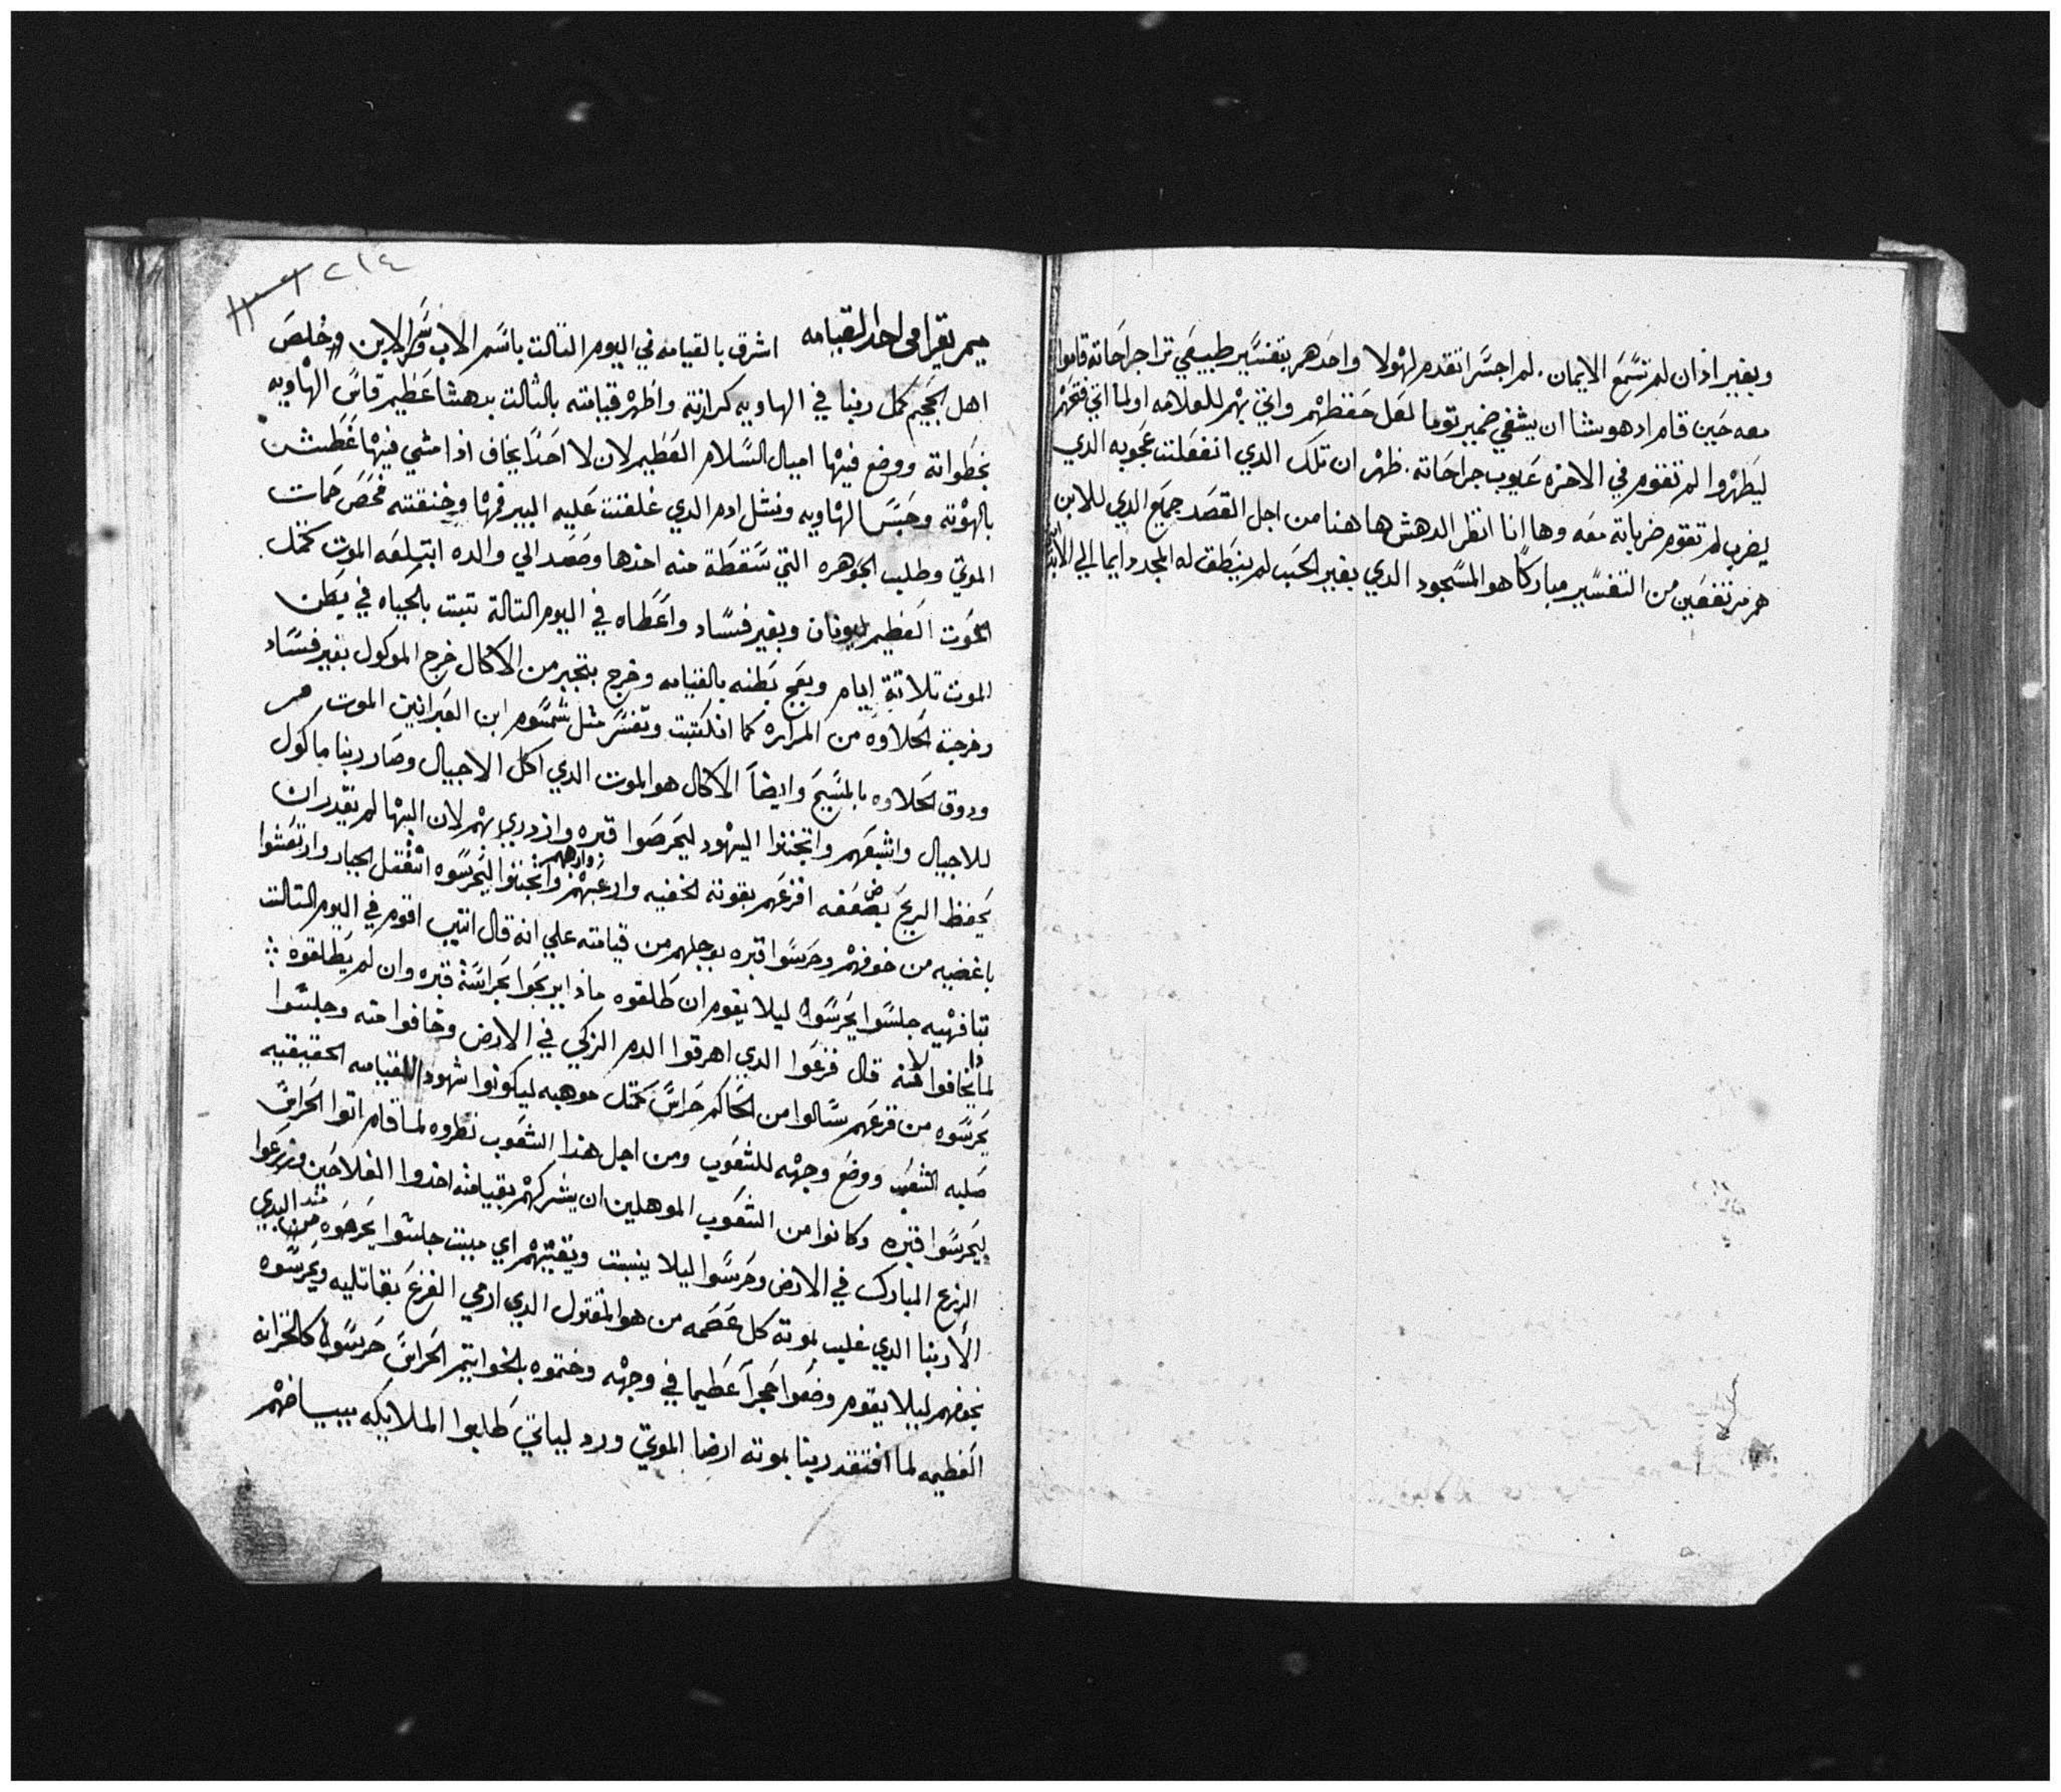 وبغير اذان لم تسمع الايمان. لم اجسر اتقدم لهولا واحدهم بتفسير طبيعي ترا جراحاته قاموا
معه حين قام ادهوبشا ان يشفي ضمير توما لعل حفظهم واتي بهم للعلامه اولما اتي فتحهم
ليظهروا لم تقوم في الاخره عيوب جراحاته. ظهر ان تلك الدي انفعلت عجوبه الدي
يضرب لم تقوم ضرباته معه وها انا انظر الدهش هاهنا من اجل القصد جميع الدي للابن
هم مرتفعين من التفسير مباركا هو المسجود الدي بغير الحب لم ينطق له المجد دايما الي الابد
٢١٤
ميمر يقرا في احد القيامه اشرق بالقيامه في اليوم التالت باسم الاب وسر الابن وخلص
اهل الجحيم كمل ربنا في الهاويه كرازته واظهر قيامته بالثالت بدهشا عظيم قاس الهاويه
بخطواته ووضع فيها اميال السلام العظيم لان لا احدا يخاف اذا مشي فيها غطست
بالهوته وحبس الهاويه ونشل ادم الدي غلقت عليه البير فمها وخنقته فحص حمات
الموتي وطلب الجوهره التي سقطة منه اخدها وصعد الي والده ابتلعه الموت كمتل
الحوت العظيم ليونان وبغير فساد واعطاه في اليوم التالة تبت بالحياه في بطن
الموت تلاتة ايام وبعج بطنه بالقيامه وخرج بتجبر من الاكال خرج الموكول بغير فساد
وخرجت الحلاوه من المراره كما انكتبت وتفسر متل شمسوم ابن العبرانين الموت مر
ودوق الحلاوه بالمسيح وايضا الاكال هو الموت الدي اكل الاجيال وصار ربنا ماكول
للاجيال واشبعهم واتجننوا اليهود ليحرصوا قبره وازدري بهم لان البها لم يقدر ان
يحفظ الريح بضعفه افزعهم بقوته الخفيه وارعبهم واتجننوا ليحرسوه انقتل الجبار وارتعشوا
باغضيه من خوفهم وحرسوا قبره بوجلهم من قيامته علي انه قال انني اقوم في اليوم التالت
تبافهيه جلسوا يحرسوه ليلا يقوم ان طلقوه ماذا يربحوا بحراسة قبره وان لم يطلقوه
لماذا يخافوا منه قال فزعوا الدي اهرقوا الدم الزكي في الارض وخافوا منه وجلسوا
يحرسوه من فزعهم سالوا من الحاكم حراس كمتل موهبه ليكونوا شهود للقيامه الحقيقيه
صلبه الشعب ووضع وجهه للشعوب ومن اجل هذا الشعوب نظروه لما قام اتوا الحراس
ليحرسوا قبره وكانوا من الشعوب الموهلين ان يشركهم بقيامته اخدوا الفلاحين وزرعوا
الزرع المبارك في الارض وحرسوا ليلا ينبت ويقيهم اي مييت جلسوا يحرصوه مند الدي
الا ربنا الدي غلب بموته كل عصمه من هو المقتول الدي ارمي الفزع بقاتليه ويحرسوه
بخوفهم ليلا يقوم وضعوا حجرا عظيما في وجهه وختموه بالخواتيم الحراس حرسوه كالخزانه
العظيمه لما افتقد ربنا بموته ارضا الموتي ورد لياتي طلبوا الملايكه ببياضهم